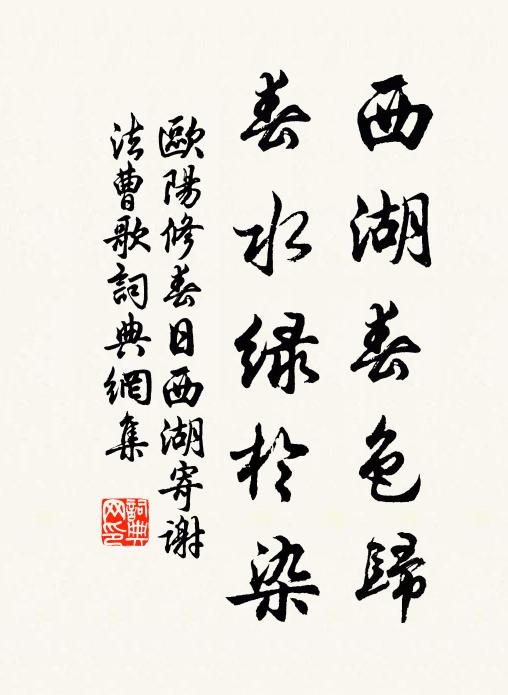 西湖春色歸
春水绿於染
歐陽修春日西湖寄谢
法曹歌詞典網集
詞典
网印